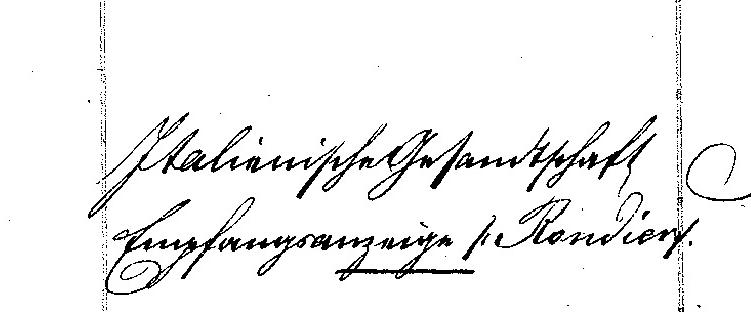 Italienische Gesandtschaft
Empfangsanzeige